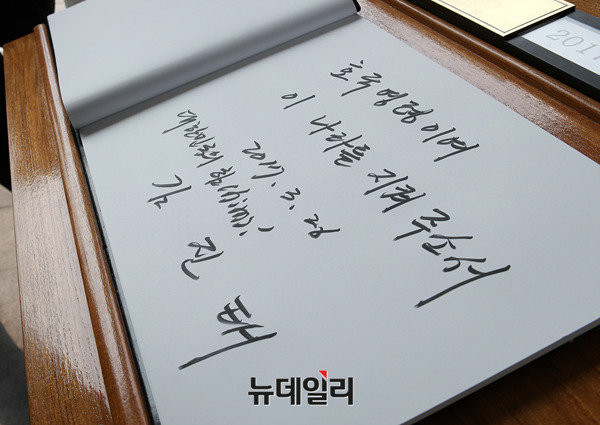 호국영령이여
이 나라를 지켜 주소서
2017. 3. 26
대한민국의 힘
김 진 태
2017
뉴데일리